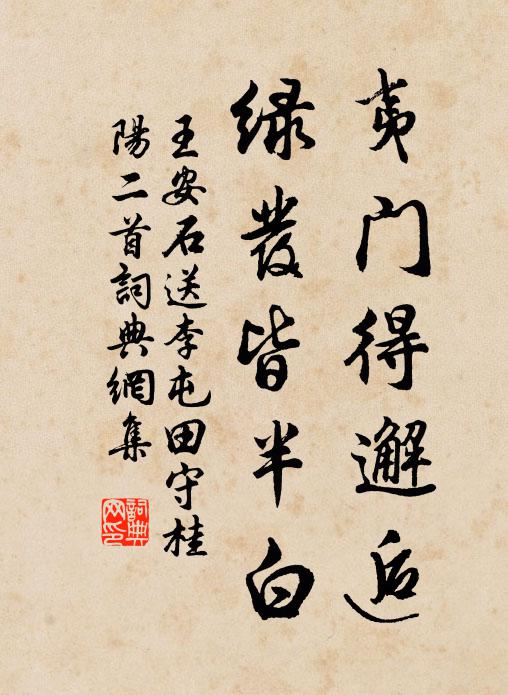 夷门得邂逅
绿發皆半白
王安石送李屯田守桂
陽二首詞典網集
詞典网印